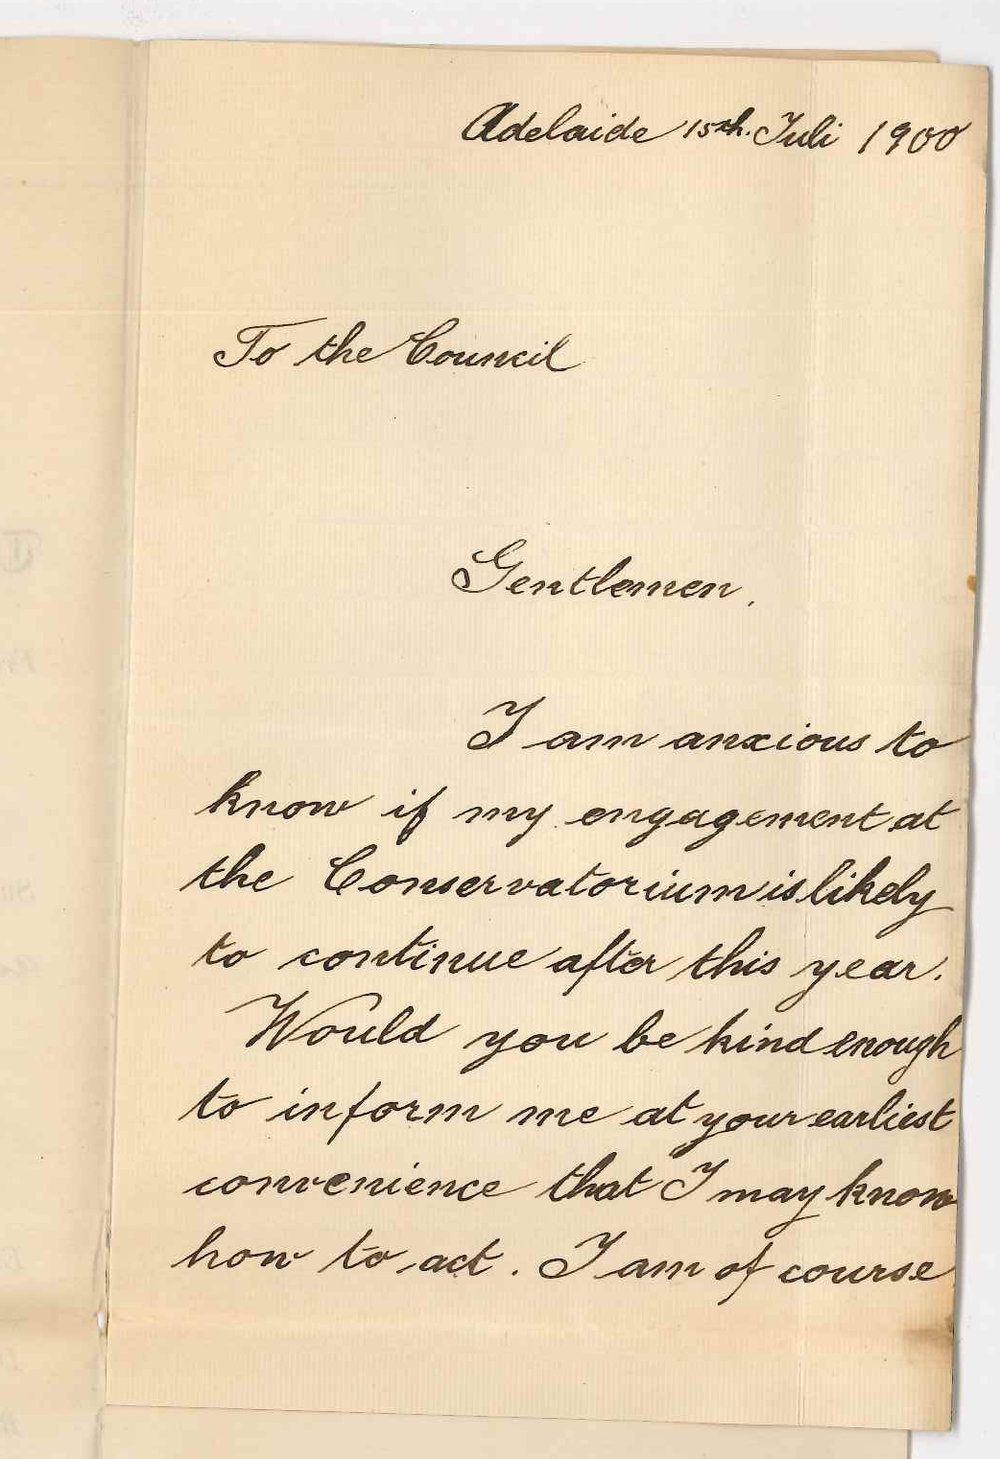 Adelaide 15th. Juli 1900
To the Council
Gentlemen.
I am anxious to
know if my engagement at
the Conservatorium is likely
to continue after this year.
Would you be kind enough
to inform me at your earliest
convenience that I may know
how to act. I am of course